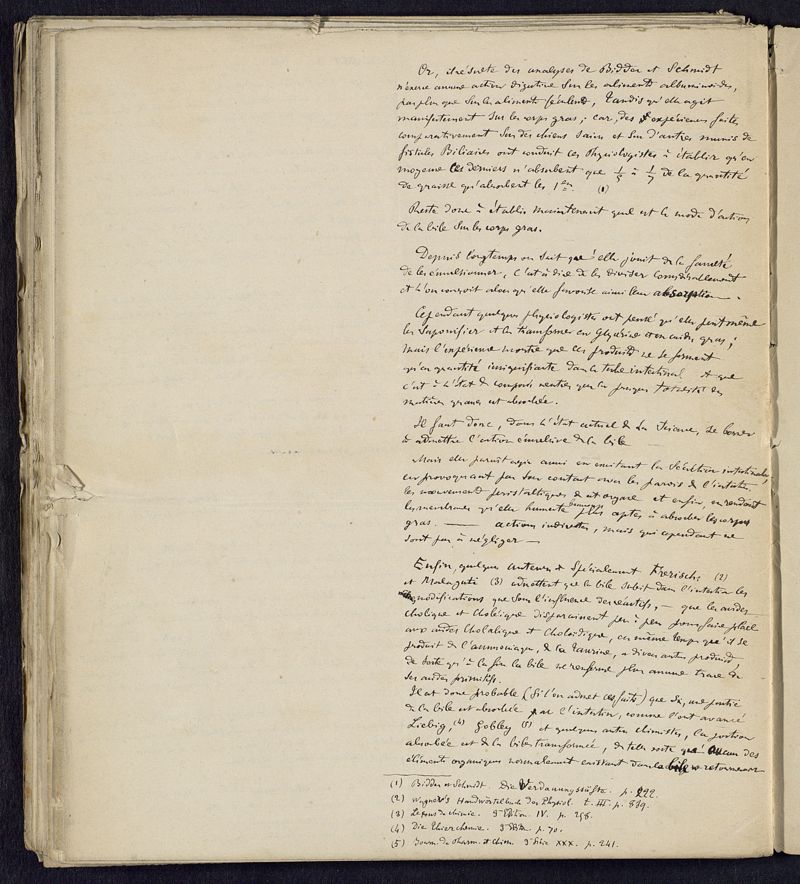 Or, il résulte des analyses de Bidder et Schmidt
n'exerce aucune action digestive sur les aliments albuminoïdes,
pas plus que sur les aliments féculents, tandis qu'elle agit
manifestement sur les corps gras ; car, des expériences faites
comparativement sur des chiens sains et sur d'autres munis de
fistules Biliaires ont conduit ces Physiologistes à établir qu'en
moyenne ces derniers n'absorbent que 1/5 à 1/7 de la quantité
de graisse qu'absorbent les 1ers. (1)
Reste donc à établir maintenant quel est le mode d'action
de la bile sur les corps gras.
Depuis longtemps on sait qu'elle jouit de la faculté
de les émulsionner, c'est à dire de les diviser considérablement
et l'on conçoit alors qu'elle favorise ainsi leur absorption.
Cependant quelques physiologistes ont pensé qu'elle peut même
les saponifier et les transformer en Glycérine et en acides gras ;
Mais l'expérience montre que ces produits ne se forment
qu'en quantité insignifiante dans le tube intestinal et que
c'est à l'état de composés neutres que la presque totalité des
matières grasses est absorbée.
Il faut donc, dans l'état actuel de la Science, se borner
à admettre l'action émulsive de la bile
Mais elle paraît agir aussi en excitant la sécrétion intestinale,
en provoquant par son contact avec les parois de l'intestin
les mouvements peristaltiques de cet organe et enfin, en rendant
les membranes qu'elle humecte plus aptes à absorber les corps
gras. — actions indirectes, mais qui cependant ne
sont pas à négliger —
Enfin, quelques auteurs et spécialement Frerichs (2)
et Malaguti (3) admettent que la bile subit dans l'intestin les
modifications que sous l'influence des réactifs, — que les acides
cholique et choléique disparaissent peu à peu pour faire place
aux acides cholalique et choloïdique, en même temps qu'il se
produit de l'ammoniaque, de la taurine, et divers autres produits,
de sorte qu'à la fin la bile ne renferme plus aucune trace de
ses acides primitifs.
Il est donc probable (si l'on admet ces faits) que si, une partie
de la bile est absorbée par l'intestin, comme l'ont avancé
Liebig, (4) Gobley (5) et quelques autres chimistes, la portion
absorbée est de la bile transformée, de telle sorte qu'aucun des
éléments organiques normalement existant dans la bile ne retournerait
(1) Bidder et Schmidt. Die Verdauungssäfte. p. 222.
(2) Wagner's Handwörterbuch der Physiol. t. III. p. 839.
(3) Leçons de chimie. 3e Edition. IV. p. 298.
(4) Die Thierchemie. 3e Edit. p. 70.
(5) Journ. de Pharm. et Chim. 3e Série XXX. p. 241.